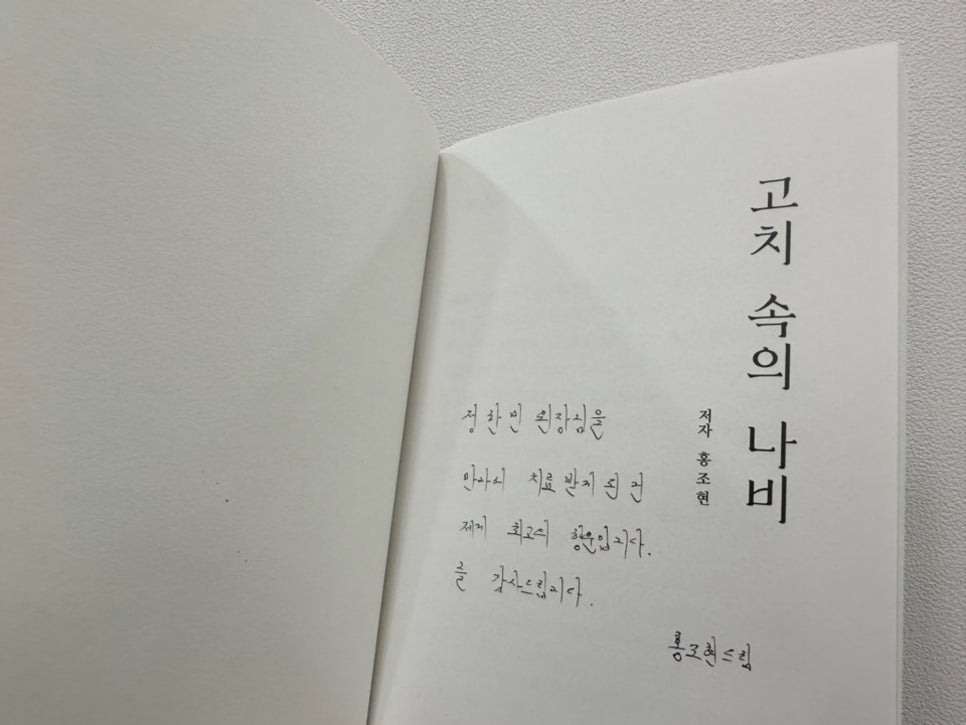 고치 속의 나비
저자 홍조현
정한민 원장님을
만나서 치료받게 된 건
제게 최고의 행운입니다.
늘 감사드립니다.
홍조현 드림